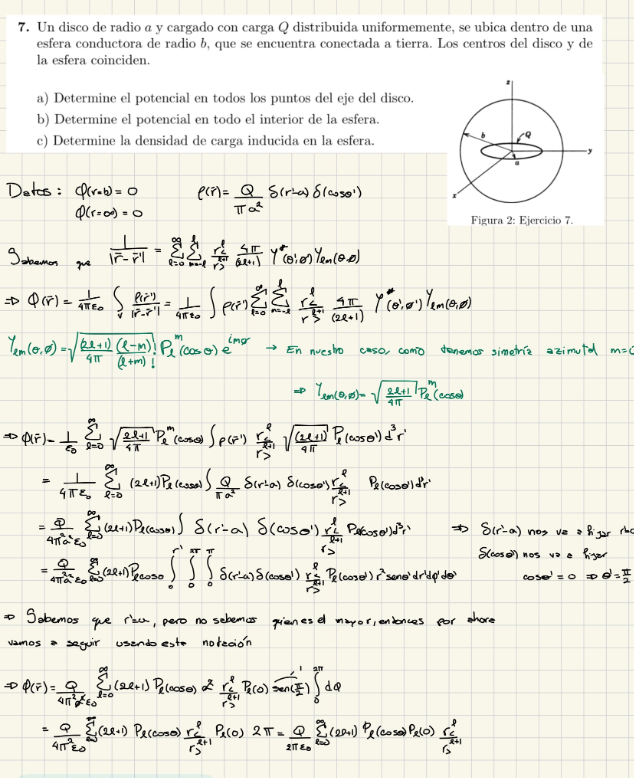 7. Un disco de radio a y cargado con carga Q distribuida uniformemente, se ubica dentro de una
esfera conductora de radio b, que se encuentra conectada a tierra. Los centros del disco y de
la esfera coinciden.
a) Determine el potencial en todos los puntos del eje del disco.
b) Determine el potencial en todo el interior de la esfera.
c) Determine la densidad de carga inducida en la esfera.
z
b
Q
y
a
x
Figura 2: Ejercicio 7.
Datos: φ(r=b) = 0    ρ(r̄) = Q/πa² δ(r'-a) δ(cosθ')
φ(r=∞) = 0
Sabemos que 1/|r̄-r̄'| = Σ_{l=0}^{∞} Σ_{m=-l}^{l} r_<^l/r_>^{l+1} 4π/(2l+1) Y*(θ',ø') Y_{lm}(θ,ø)
⇒ φ(r̄) = 1/4πε₀ ∫_V ρ(r̄')/|r̄-r̄'| = 1/4πε₀ ∫ ρ(r̄') Σ_{l=0}^{∞} Σ_{m=-l}^{l} r_<^l/r_>^{l+1} 4π/(2l+1) Y*(θ',ø') Y_{lm}(θ,ø)
Y_{lm}(θ,ø) = √((2l+1)/4π (l-m)!/(l+m)!) P_l^m(cosθ) e^{imø} → En nuestro caso, como tenemos simetría azimutal m=0
⇒ Y_{lm}(θ,ø) = √((2l+1)/4π) P_l^m(cosθ)
⇒ φ(r̄) = 1/ε₀ Σ_{l=0}^{∞} √((2l+1)/4π) P_l^m(cosθ) ∫ ρ(r̄') r_<^l/r_>^{l+1} √((2l+1)/4π) P_l(cosθ') d³r'
= 1/4πε₀ Σ_{l=0}^{∞} (2l+1) P_l(cosθ) ∫ Q/πa² δ(r'-a) δ(cosθ') r_<^l/r_>^{l+1} P_l(cosθ') d³r'
= Q/4π²a²ε₀ Σ_{l=0}^{∞} (2l+1) P_l(cosθ) ∫ δ(r'-a) δ(cosθ') r_<^l/r_>^{l+1} P_l(cosθ') d³r' ⇒ δ(r'-a) nos va a fijar
δ(cosθ) nos va a fijar
= Q/4π²a²ε₀ Σ_{l=0}^{∞} (2l+1) P_l cosθ ∫_0^{r'} ∫_0^{2π} ∫_0^{π} δ(r'-a) δ(cosθ') r_<^l/r_>^{l+1} P_l(cosθ') r² senθ' dr' dφ' dθ'    cosθ' = 0 ⇒ θ' = π/2
⇒ Sabemos que r'=a, pero no sabemos quien es el mayor, entonces por ahora
vamos a seguir usando esta notación
⇒ φ(r̄) = Q/4π²a²ε₀ Σ_{l=0}^{∞} (2l+1) P_l(cosθ) a² r_<^l/r_>^{l+1} P_l(0) sen(π/2) 1 ∫_0^{2π} dø
= Q/4π²ε₀ Σ_{l=0}^{∞} (2l+1) P_l(cosθ) r_<^l/r_>^{l+1} P_l(0) 2π = Q/2πε₀ Σ_{l=0}^{∞} (2l+1) P_l(cosθ) P_l(0) r_<^l/r_>^{l+1}